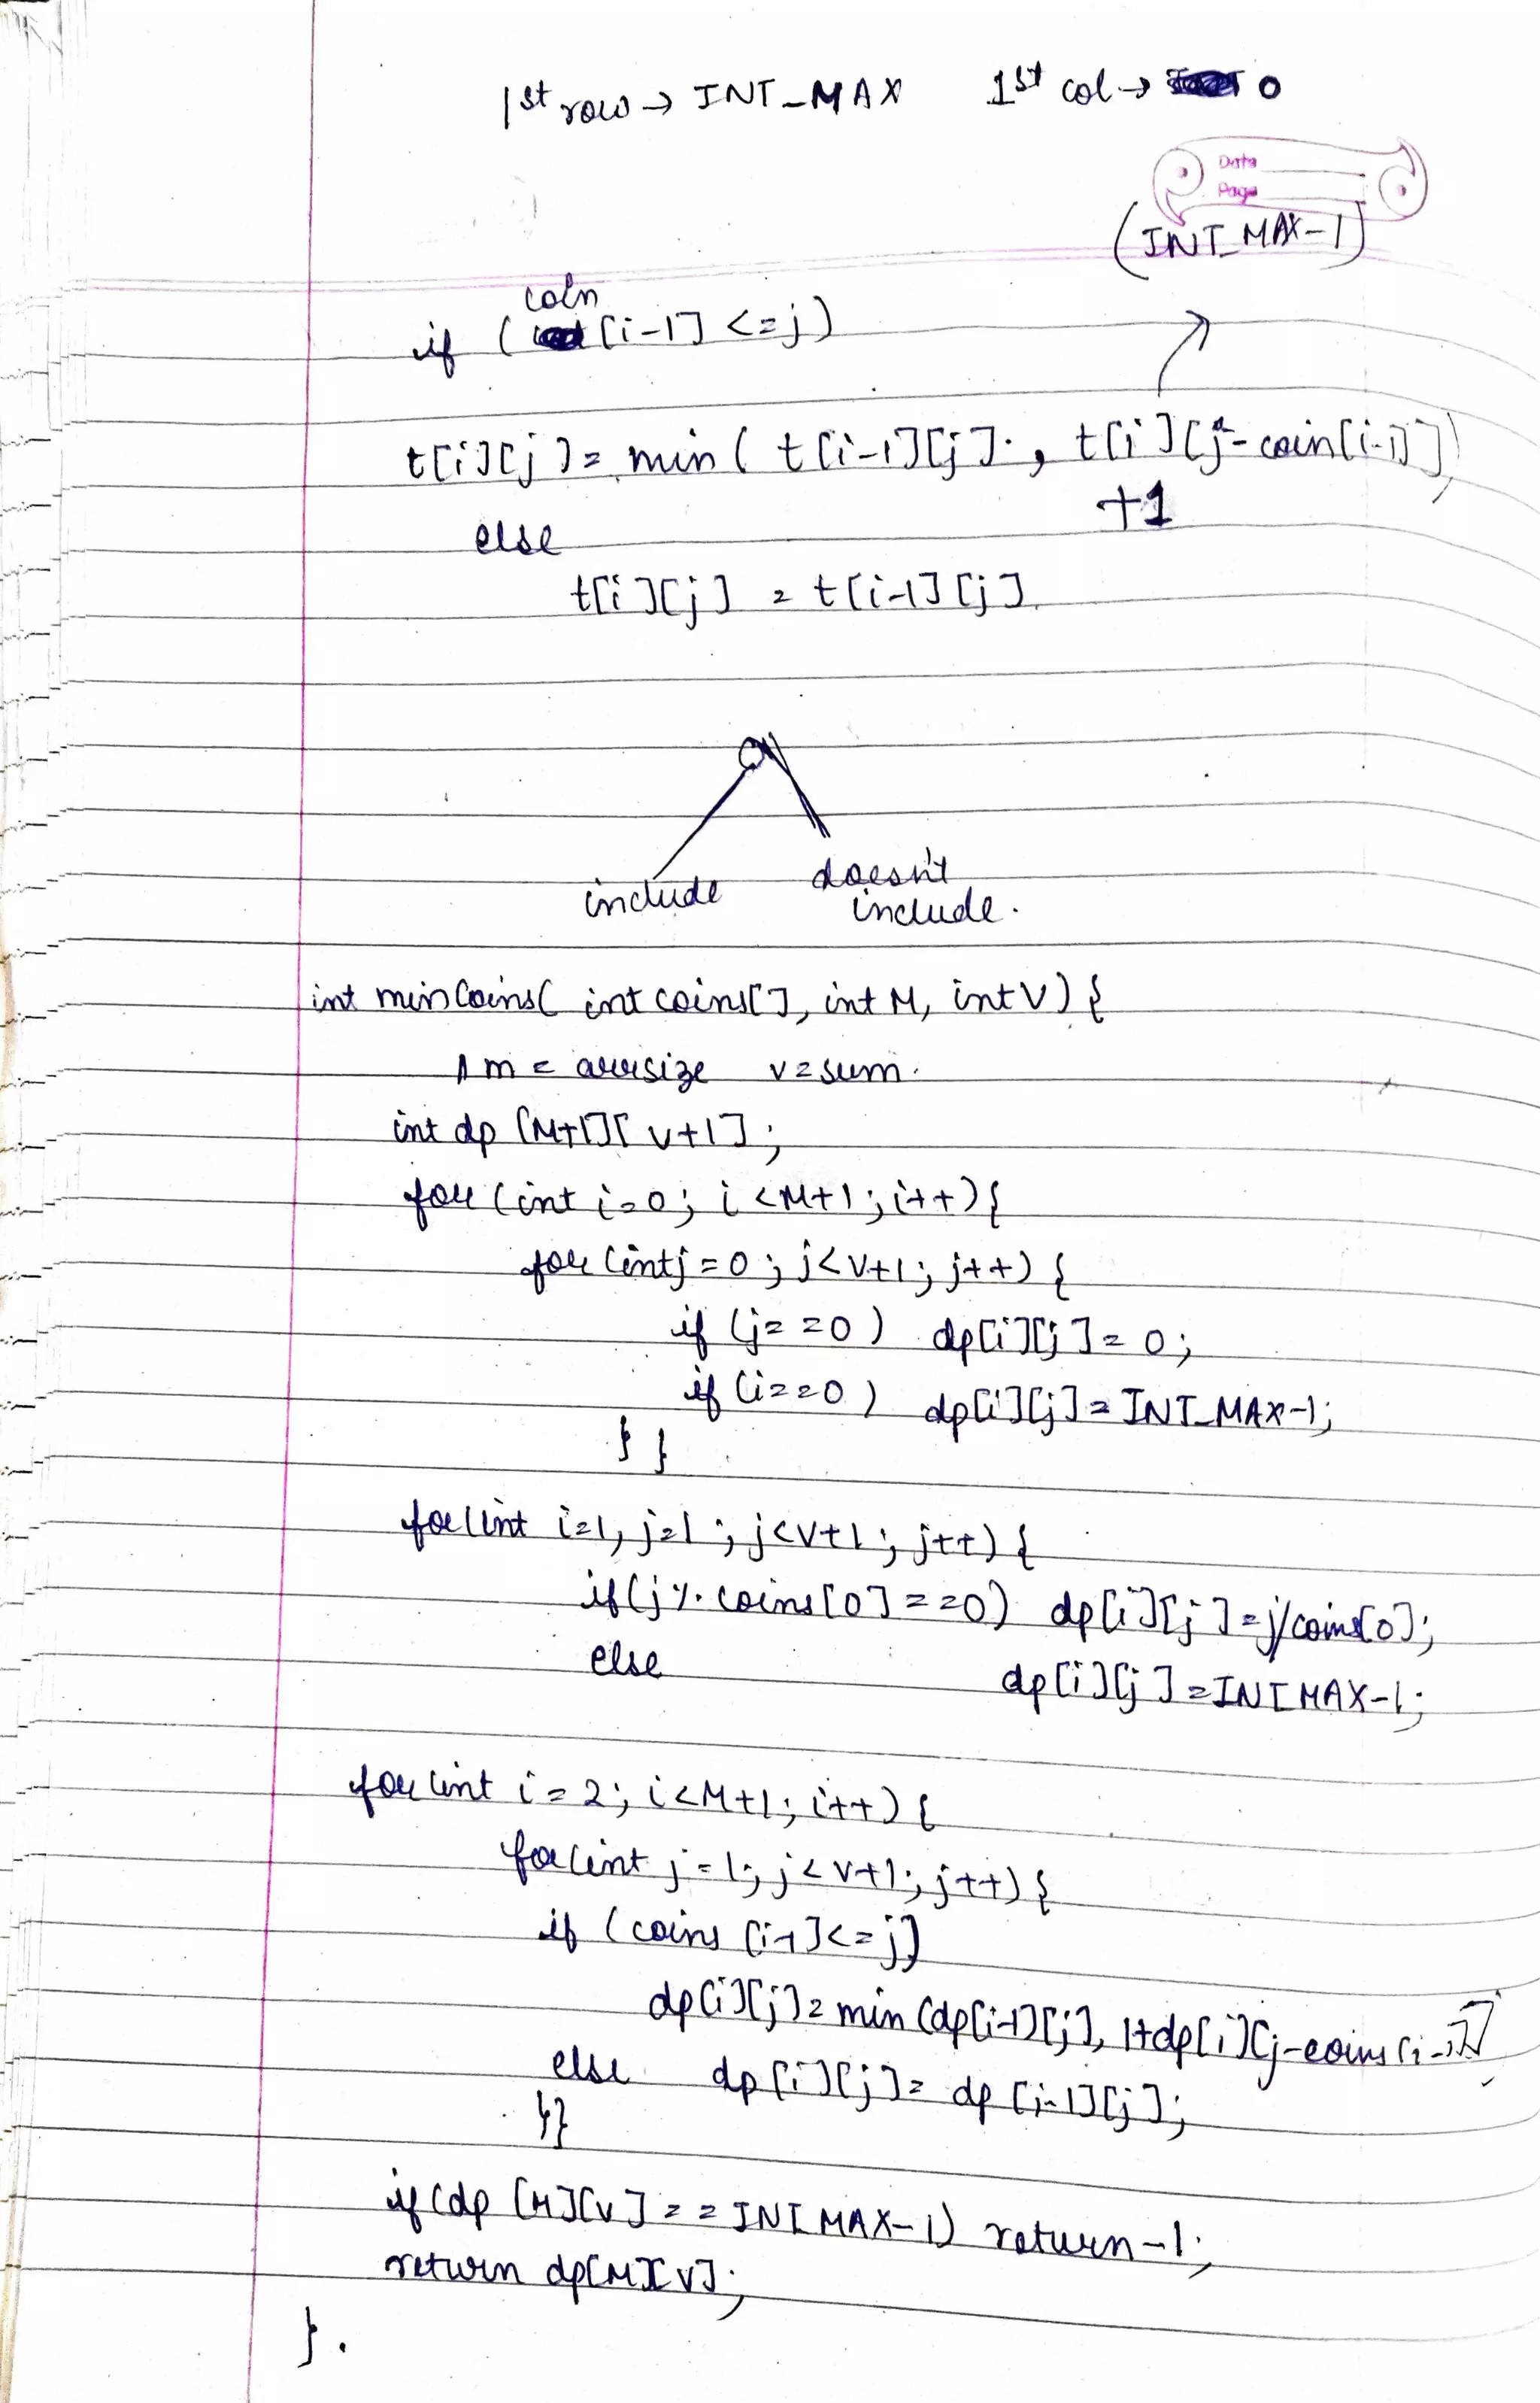 1st row → INT_MAX 1st col → 0
Date
Page
(INT_MAX-1)
coin
if ( [i-1] <=j)
t[i][j] = min( t[i-1][j] , t[i][j-coin[i-1]])
+1
else
t[i][j] = t[i-1][j]
include doesn't
include.
int minCoins( int coins[], int M, int V) {
m = arrsize v=sum.
int dp [M+1][V+1];
for (int i=0; i <M+1; i++) {
for (int j=0; j<V+1; j++) {
if (j==0) dp[i][j] = 0;
if (i==0) dp[i][j] = INT_MAX-1;
} }
for(int i=1, j=1; j<V+1; j++) {
if(j % coins[0]==0) dp[i][j]=j/coins[0];
else dp[i][j]=INT MAX-1;
for(int i=2; i<M+1; i++) {
for(int j=1; j<V+1; j++) {
if (coins [i-1]<=j)
dp[i][j]=min(dp[i-1][j], 1+dp[i][j-coins[i-1]]
else dp[i][j]= dp [i-1][j];
}}
if(dp [M][V]==INT MAX-1) return-1;
return dp[M][V];
}.